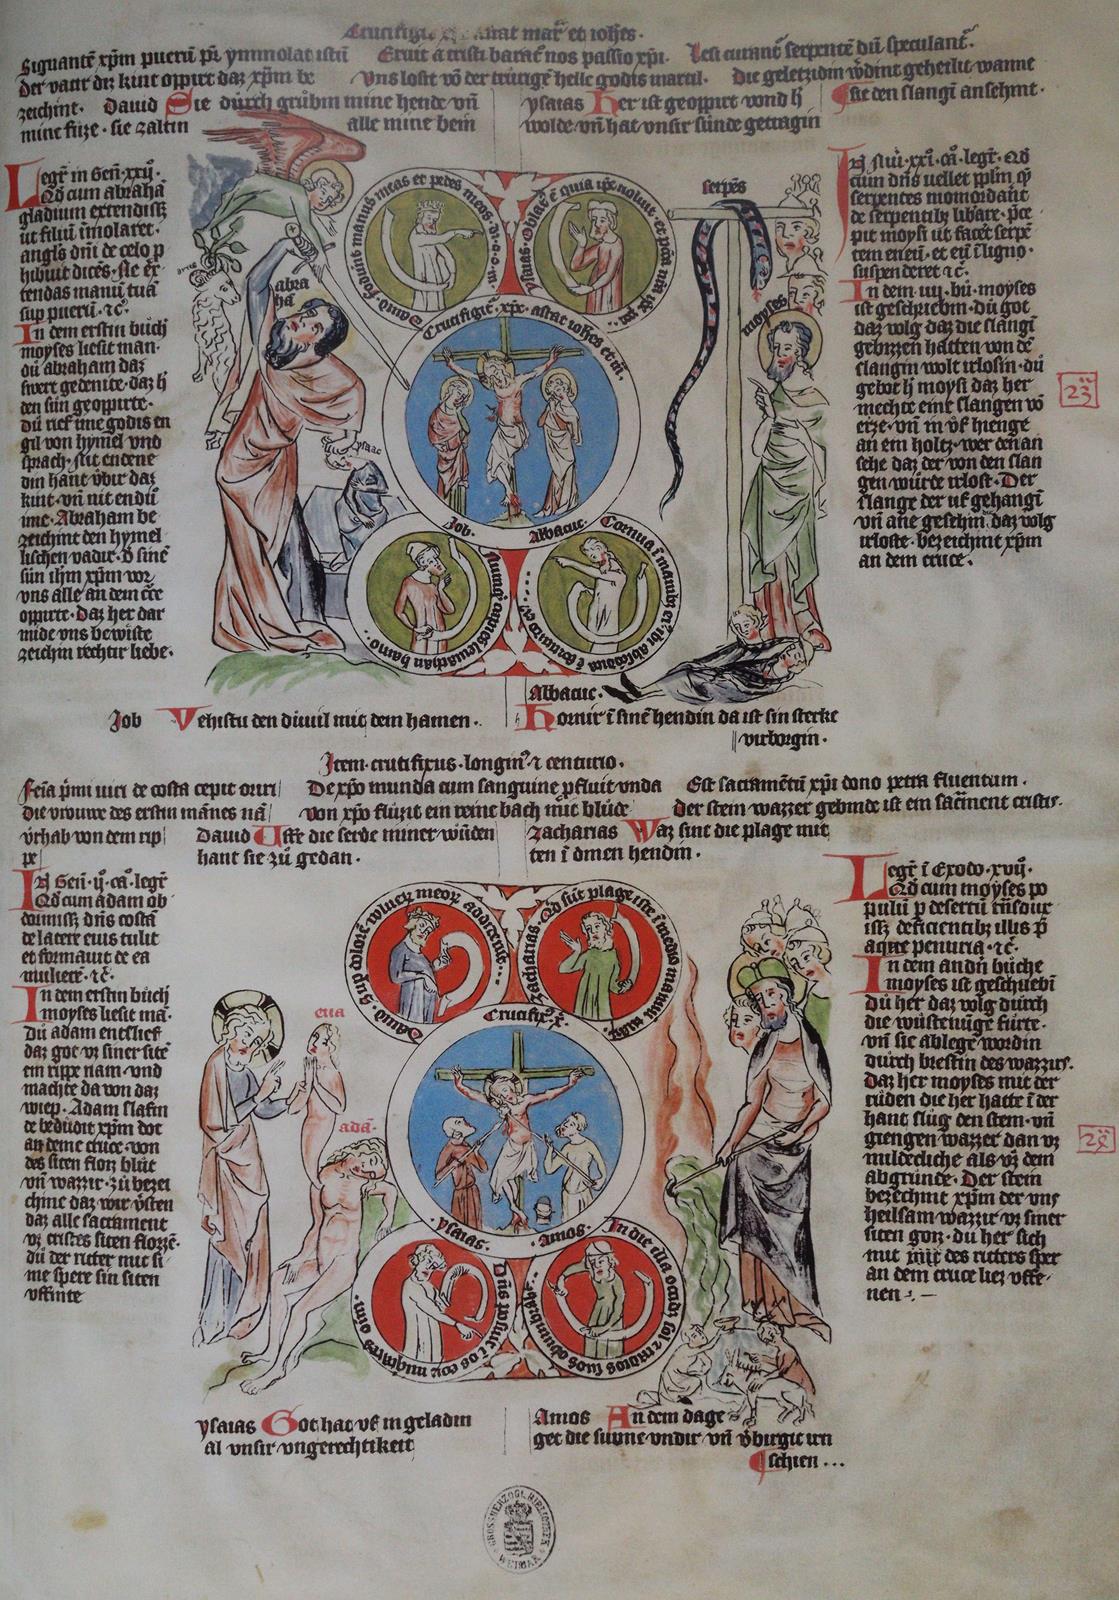 Siguantē xp̄m puerū pr̄ ymmolat istū
der vatir dr̄ kint oppirt daz xp̄m be
zeichint. Dauid Sie durch grūbin mine hende vn̄
mine fūze. sie zaltin alle mine bein
Eruit a tristi baratͬ nos passio xp̄i.
vns lost vō der trūrigē helle godis martil.
ysaias Her ist geoppirt wond h̄
wolde vn̄ hat vnsir sūnde getragin
Lesi curantͬ serpentē dū speculantͬ.
die geletzidin wͬdint geheilit wanne
sie den slangī ansehint.
Legitͬ in Gen̄. xxij.
Qd cum abraha
gladium extendissꝫ
ut filiū īmolaret.
angls dn̄i de celo p
hibuit dicēs. Ne ex
tendas manū tuā
sup puerū. ⁊c.
In dem erstin būch
moyses lisit man.
dū abraham daz
swert gedenite. daz h̄
den sūn geoppirte.
dū rief ime godis en
gil von hymel vnd
sprach. nit endene
din hant vbir daz
kint. vn̄ nit endū
ime. Abraham be
zeichint den hymel
lischen vadir. d̄ sinē
sūn ihm xp̄m vor
vns alle an dem crͨe
oppirte. daz her dar
mide vns bewiste
zeichin rechtir liebe.
abra
hā
ysaac
Dauid. Foderunt manus meas et pedes meos. d. a. o. m.
ysaias. Oblatͬ ē quia ip̄e uoluit. et pctā nr̄a ip̄e
Crucifigit͛. xp̄c. astat ioh̄es et m̄.
Job.
Abacuc. Cornua ī manibꝫ ei͛. ibi abscōdita ē fortitudo ei͛
serpēs
moyses
cum dn̄s uellet pp̄lm qͥ
serpentes momordant
de serpentibꝫ lib̄are. pͨce
pit moysi ut facēt serpē
tem eneū. et eū ī ligno.
suspenderet ⁊c.
In dem iiij. bū. moyses
ist geschriebin. dū got
daz volg daz die slangī
gebizzen hatten von dē
slangin wolt irlosin. dū
gebot h̄ moysi daz her
mechte eine slangen vō
erze. vn̄ in vf hienge
an ein holtz. wer den an
sehe daz der von den slan
gen wūrde irlost. Der
slange der uf gehangī
vn̄ ane gesehin daz volg
irloste. bezeichnit xp̄m
an dem cruce.
23
Job Vehistu den diuuil mit dem hamen.
Abacuc.
Hornir ī sinē hendin da ist sin sterke
virborgin.
Item. crucifixus. longin͛ ⁊ centurio.
Femīa p̄mi uiri de costa cepit oriri
die vrouwe des erstin mānes nā
vrhab von dem rip
pe
De xp̄o munda cum sanguine p̄fluit vnda
von xp̄o fluzit ein reine bach mit blūde
Dauid Uffe die serde miner wūden
hant sie zū gedan.
Est sacramētū xp̄i dono petra fluentum.
der stein wazzer gebinde ist ein sacͬment cristi.
zacharias Waz sint die plage mit
ten ī dinen hendin.
In Gen̄. ij. ca. legitͬ
Qd cum adam ob
dormissꝫ dn̄s costā
de latere eius tulit
et formauit de ea
mulierē. ⁊c.
In dem erstin būch
moyses lisit mā.
Dū adam entslief
daz got vz siner sitē
ein rippe nam. vnd
machte da von daz
wiep. Adam slafin
de bedūdit xp̄m dot
an deme cruce. von
des siten floz blūt
vn̄ wazzir. zū bezei
chine daz wir vͬsten
daz alle sacrament
vz cristes siten flozzē.
dū der ritter mit si
me spere sin siten
vffinte
eua
adā.
Dauid. Sup dolorē vulnerꝫ meorꝫ addiderunt.
zacharias. Qd sūt plage iste ī medio manuū tuarꝫ
Crucifix͛. x̄.
ysaias. Dn̄s posuit ī eo
Amos. In die illa occidet sol
Legitͬ ī Exodo. xvij.
Qd cum moyses po
pulū p desertū
issꝫ deficientibꝫ illis p̄
aque penuria. ⁊c.
In dem andn̄ būche
moyses ist geschriebī
dū her daz volg dūrch
die wūstenūge fūrte.
vn̄ sie ablege wordin
dūrch brestin des wazzirs.
Daz her moyses mit der
rūden die her hatte ī der
hant slūg den stein. vn̄
giengen wazzer dan vz
mildecliche als vz dem
abgrūnde. Der stein
bezechnit xp̄m der vns
heilsam wazzir vz siner
siten goz. dū her sich
mit des ritters sper
an dem cruce liez uffe
nen
24
ysaias Got hat vf in geladin
al vnsir vngerechtikeit
Amos An dem dage
get die sūnne vndir vn̄ v̄birgit irn
schien
GROSSHERZOGL. BIBLIOTHEK
WEIMAR